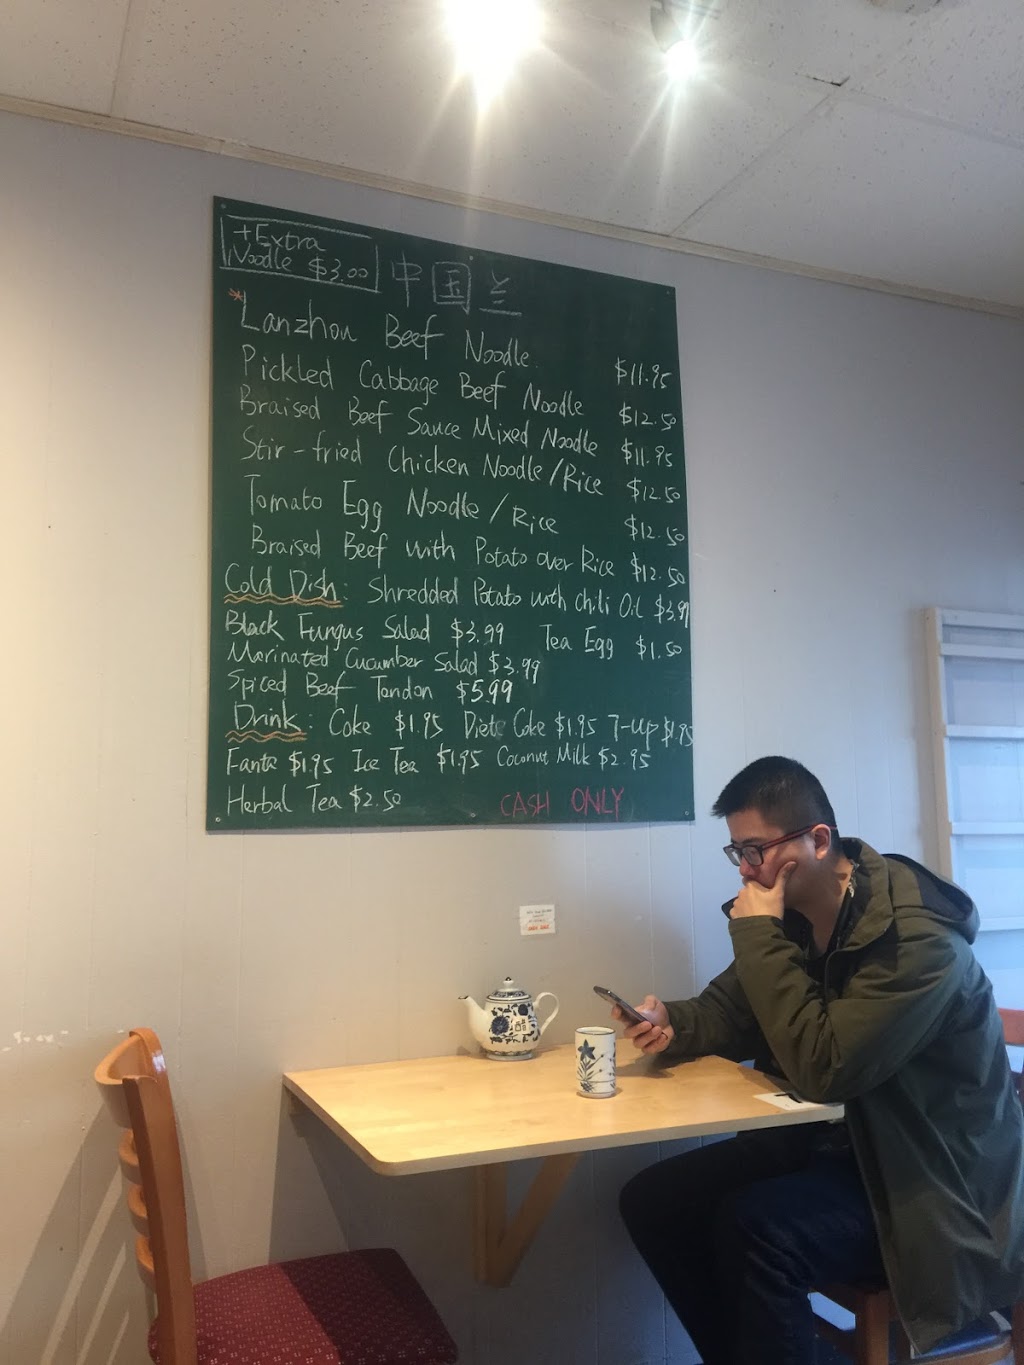 +Extra
Noodle $3.00
中国兰
*Lanzhou Beef Noodle. $11.95
Pickled Cabbage Beef Noodle $12.50
Braised Beef Sauce Mixed Noodle $11.95
Stir-fried Chicken Noodle/Rice $12.50
Tomato Egg Noodle/Rice $12.50
Braised Beef with Potato over Rice $12.50
Cold Dish: Shredded Potato with Chili Oil $3.99
Black Fungus Salad $3.99 Tea Egg $1.50
Marinated Cucumber Salad $3.99
Spiced Beef Tandon $5.99
Drink: Coke $1.95 Diete Coke $1.95 7-up $1.95
Fanta $1.95 Ice Tea $1.95 Coconut Milk $2.95
Herbal Tea $2.50 CASH ONLY